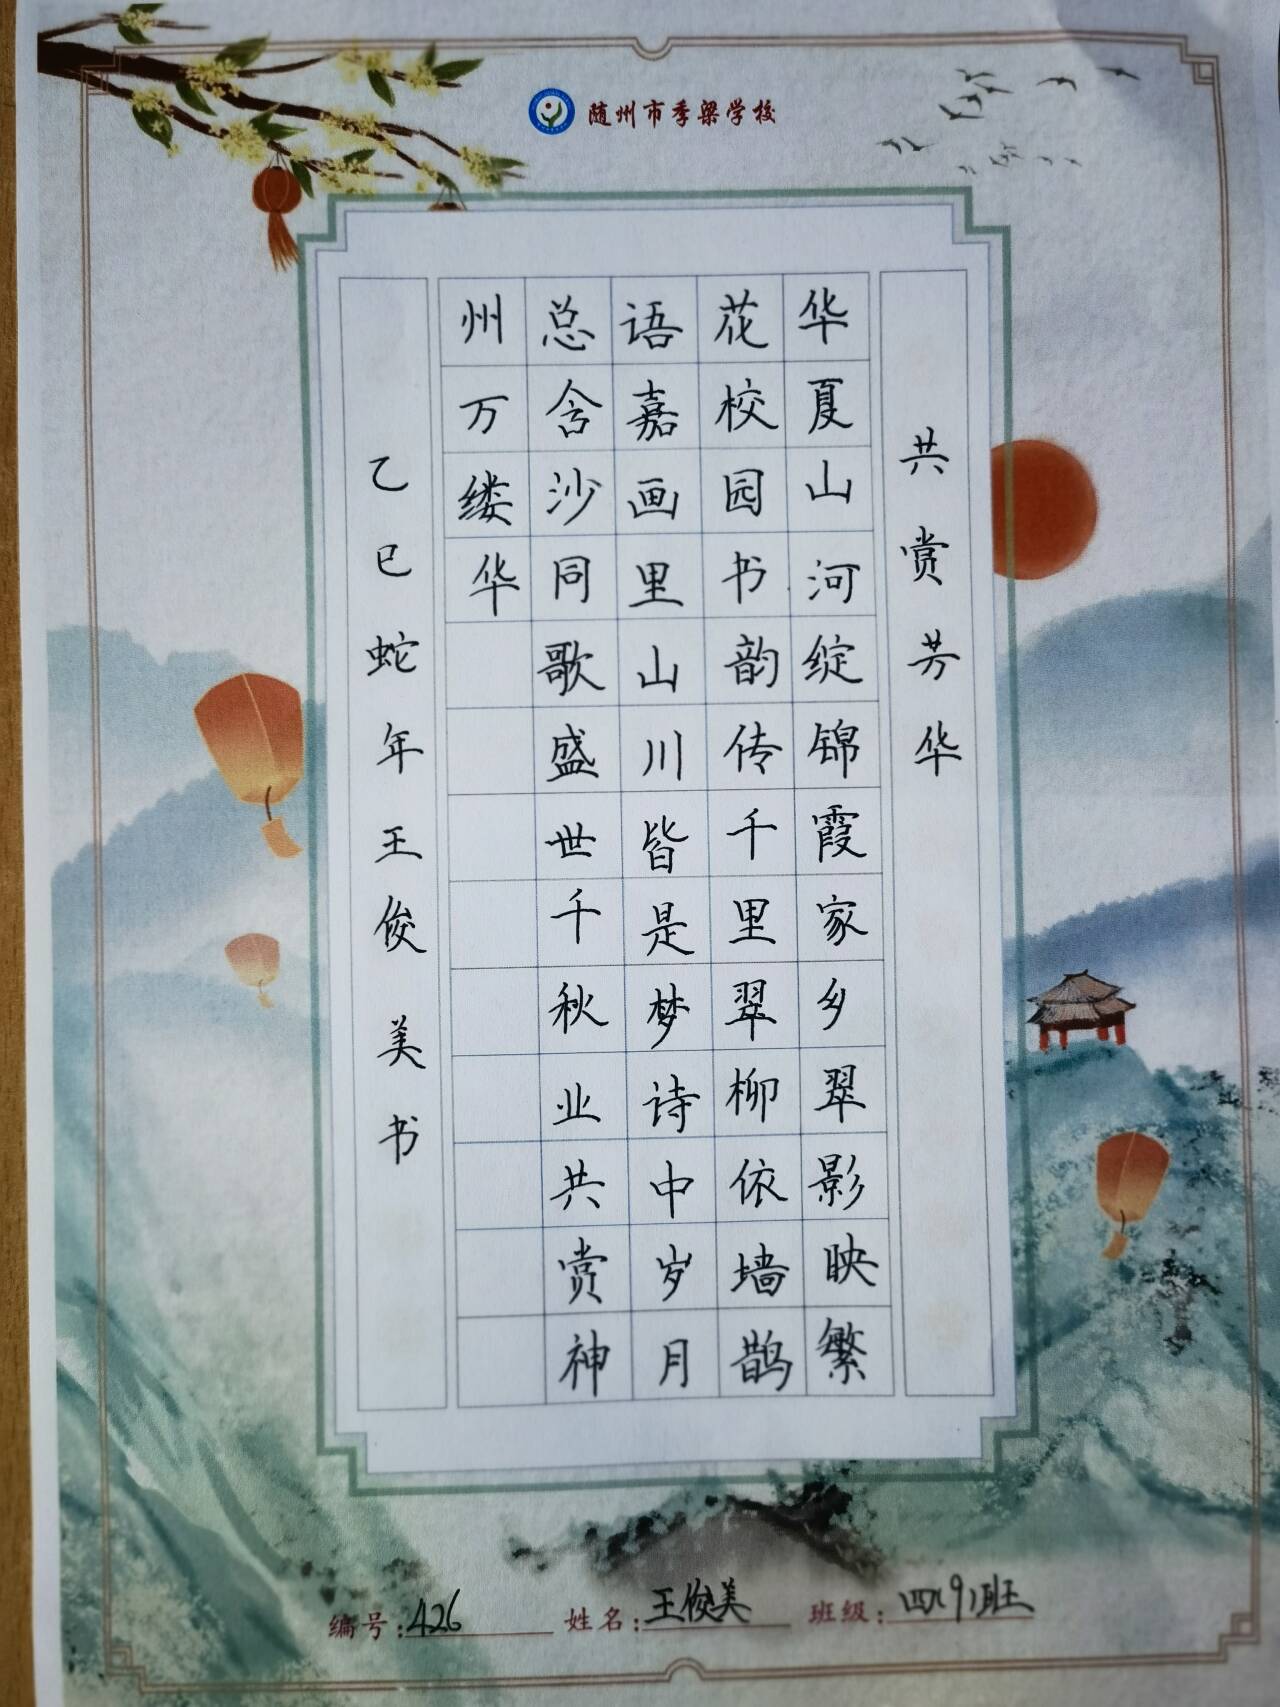 随州市季梁学校
共赏芳华
华夏山河绽锦霞家乡翠影映繁
花校园书韵传千里翠柳依墙鹊
语嘉画里山川皆是梦诗中岁月
总含沙同歌盛世千秋业共赏神
州万缕华
乙巳蛇年王俊美书
编号:426 姓名:王俊美 班级:四(9)班